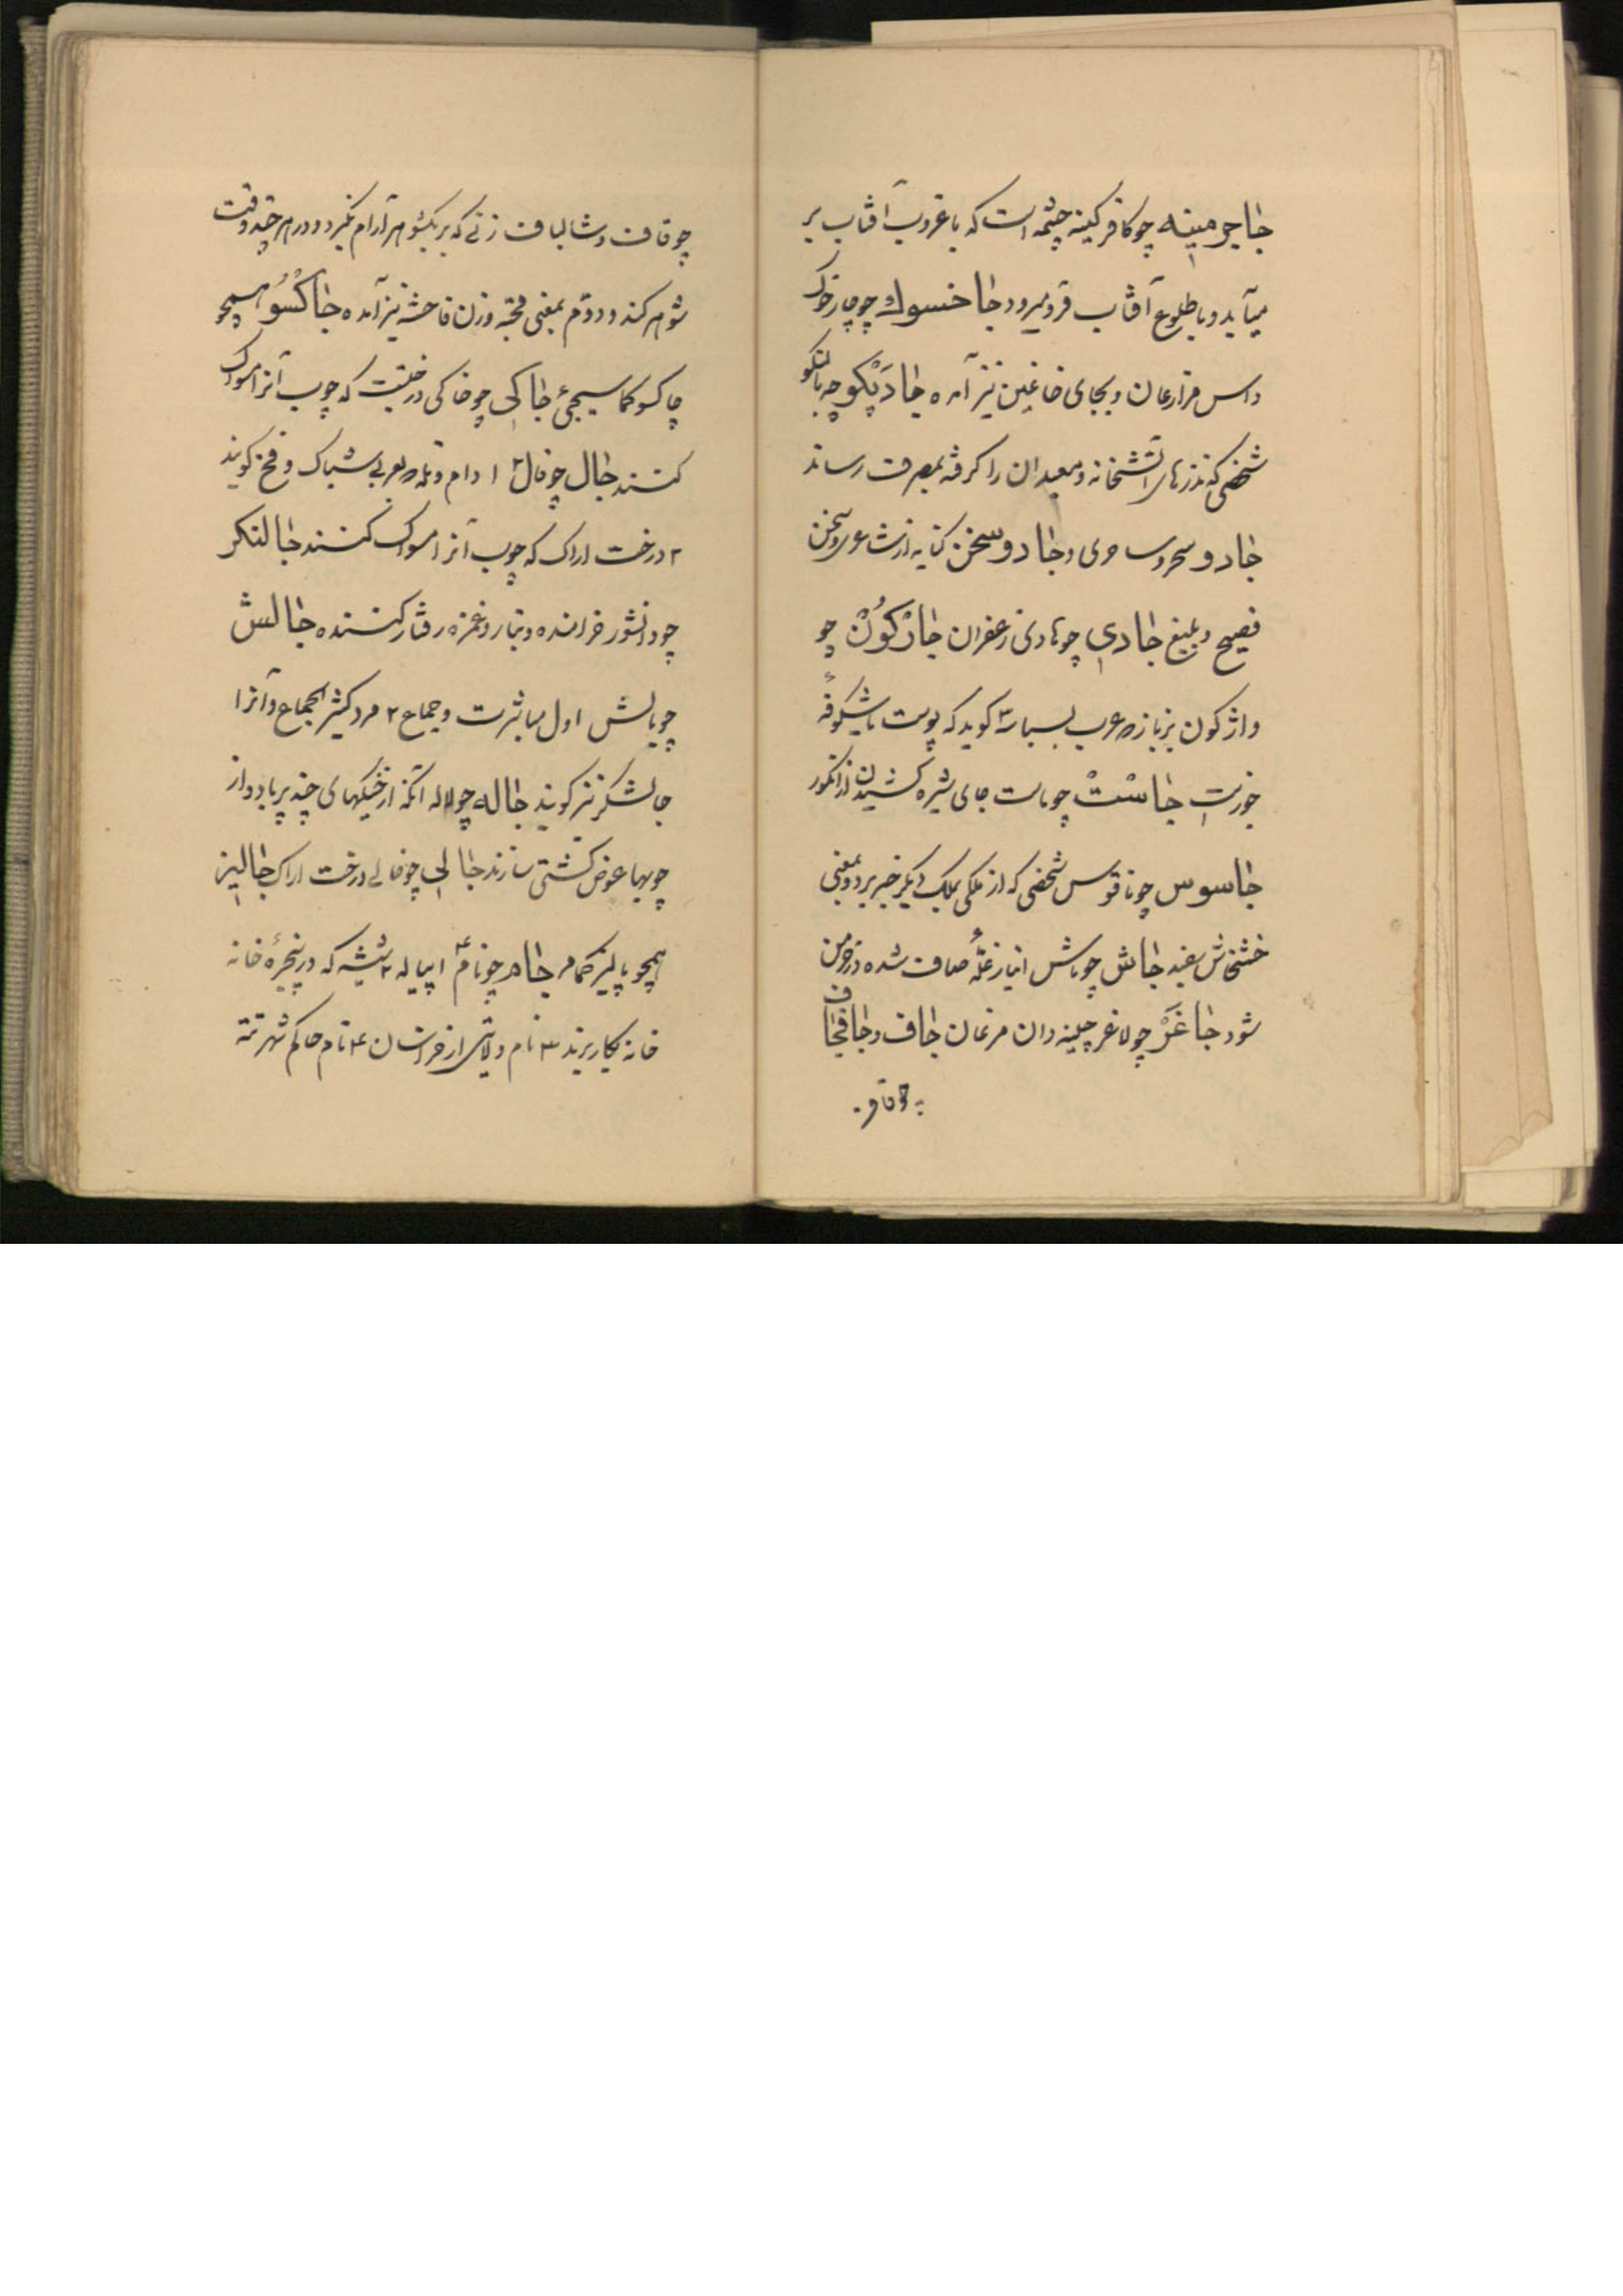 جاجرمینه چو کافر کینه چشمه است که با غروب آفتاب بر
میآید و با طلوع آفتاب فرو میرود جاخسوك چو چارخوك
داس مزارعان و بجای خا غین نیز آمده جادنکو چه بالنکو
شخصی که نذرهای آتشخانه و معبدان را کرفه بمصرف رساند
جادو سحر و ساحری و جادو سخن کنایه از شاعر و سخن
فصیح و بلیغ جادی چو هادی زعفران جارکون چو
واژکون بزبازه عرب بسباسه کوید که پوست یا شکوفهٔ
جاست چو ماست جای شیره کشیدن از انکور
جاسوس چو ناقوس شخصی که از ملکی بملک دیکر خبر برد و بمعنی
خشخاش سفید جاش چو باش انبار غلّهٔ صاف شده در خرمن
شود جاغر چو لاغر چینه دان مرغان جاف و جاف جاف
چو قاف و شالباف زنی که بر یکشوهر آرام نکیرد و در هر چند وقت
شوهر کند و دوّم بمعنی قحبه و زن فاحشه نیز آمده جاکسو همچو
چاکسو کما سیجیٔ جاکی چو خاکی درختیست که چوب آنرا مسواک
کنند جال چو فال ۱ دام و تله عربی شباک و فخ کویند
۲ درخت اراک که چوب آنرا مسواک کنند جالنکر
چو دانشور خرامنده و بناز و غمزه رفتار کننده جالش
چو بالش اول مباشرت و جماع ۲ مرد کثیر الجماع و آنرا
جالشکر نیز کویند جاله چو لاله آنکه از خیکهای چند پر باد و از
چوبها عوض کشتی سازند جالی چو خالی درخت اراک جالیز
همچو پالیز کمامر جام چو نام ۱ پیاله ۲ شیشه که در پنجرهٔ خانه
خانه بکار برند ۳ نام ولایتی از خراسان ۴ نام حاکم شهر تته